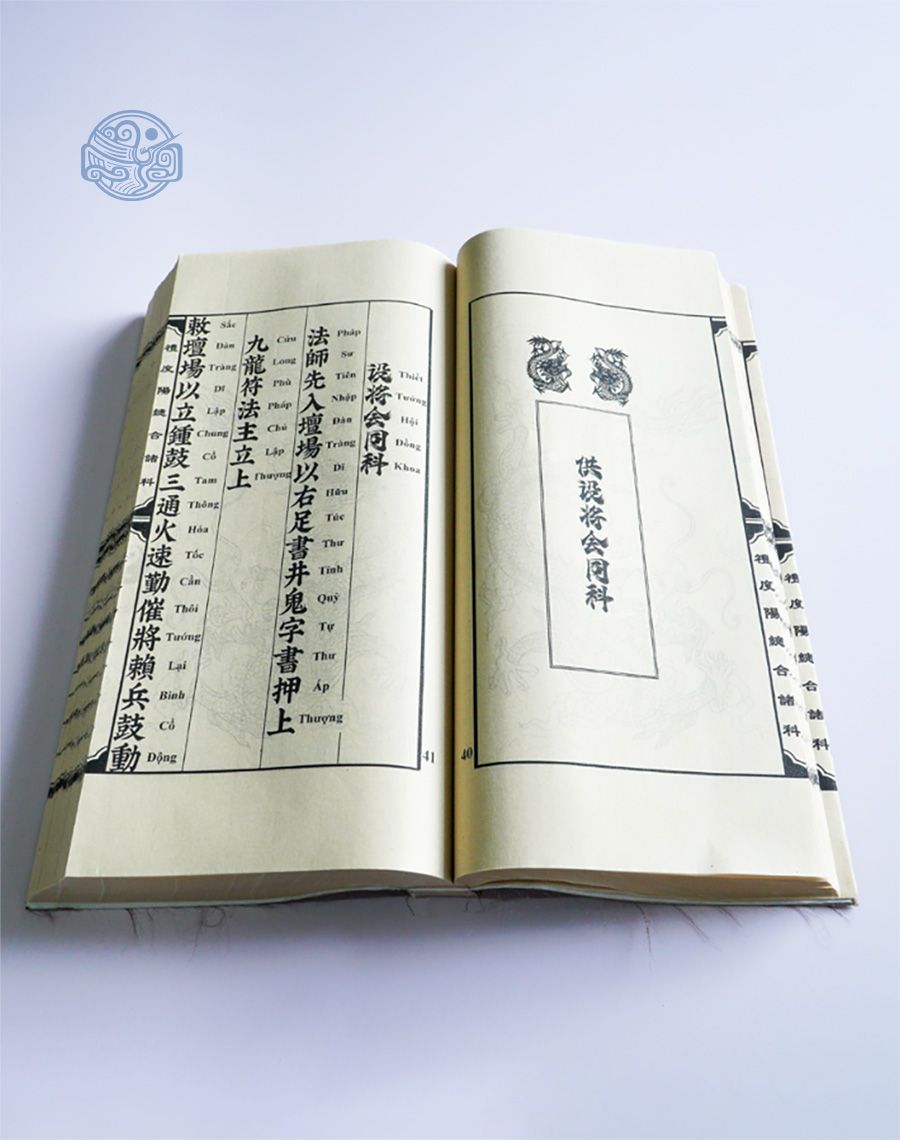 禮度陽總合諸科
禮度陽總合諸科
供设将会同科
40
设将会同科
Thiết Tướng Hội Đồng Khoa
法師先入壇場以右足書井鬼字書押上
Pháp Sư Tiên Nhập Đàn Tràng Dĩ Hữu Túc Thư Tỉnh Quỷ Tự Thư Áp Thượng
九龍符法主立上
Cửu Long Phù Pháp Chủ Lập Thượng
敕壇場以立鍾鼓三通火速勤催將賴兵鼓動
Sắc Đàn Tràng Dĩ Lập Chung Cổ Tam Thông Hỏa Tốc Cần Thôi Tướng Lại Binh Cổ Động
禮度陽總合諸科
41